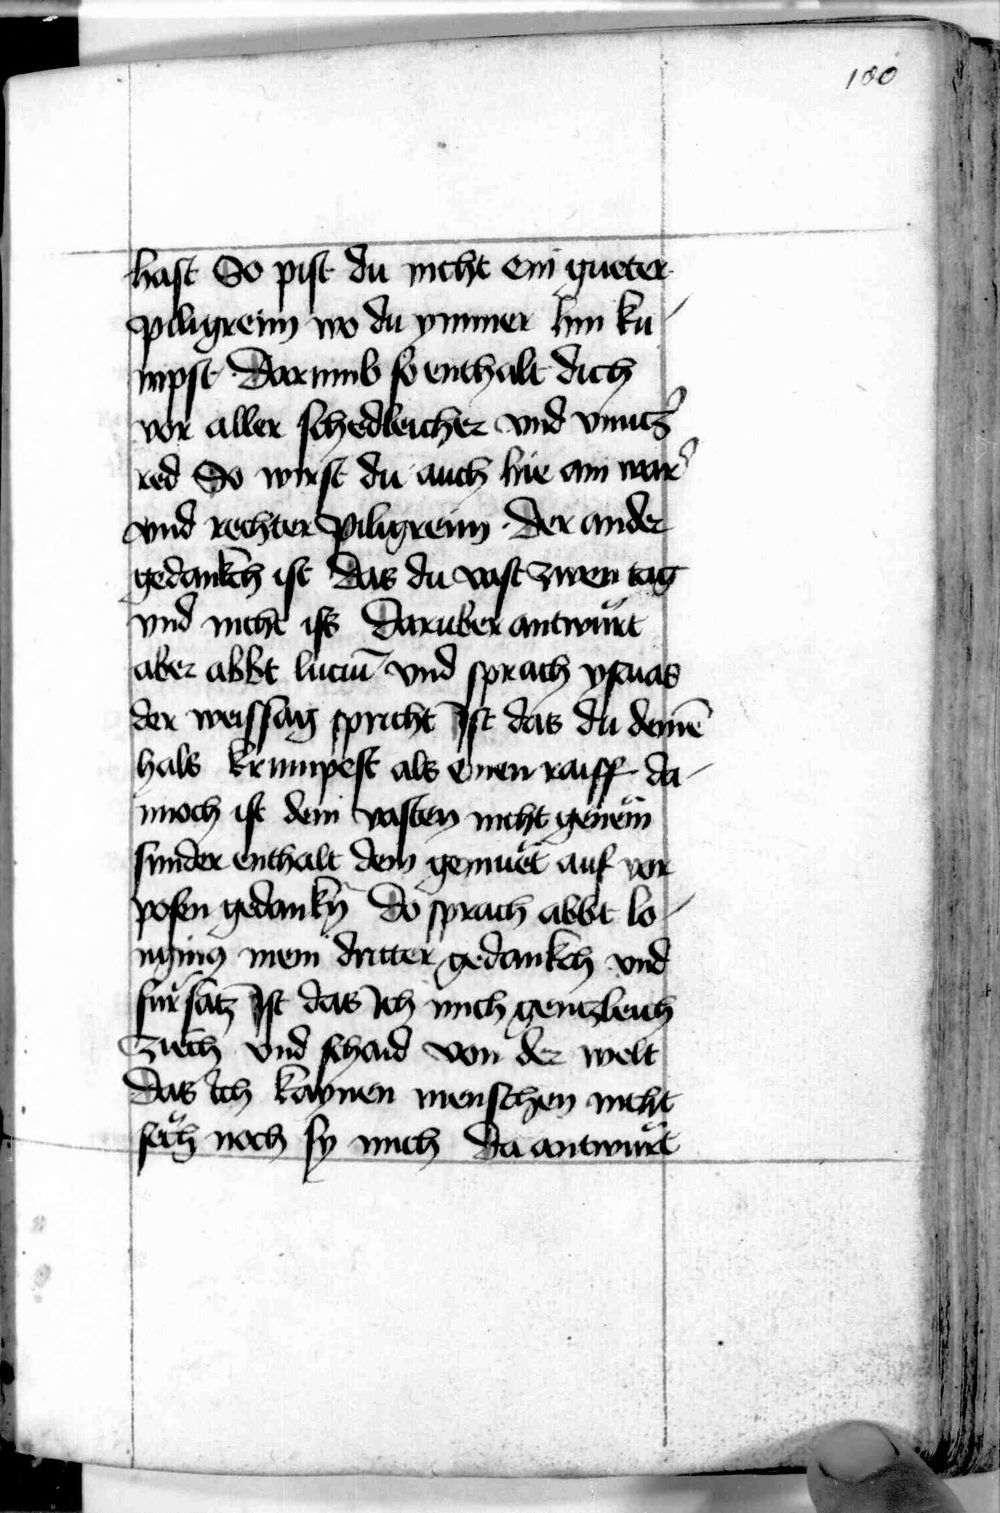 100
hast So pist du nicht ein gueter
piligreim wo du ymmer hin ku
mpst Darumb so enthalt dich
vor aller schedleicher vnd vnnucz̾
red So wirst du auch hie ain war̾
vnd rechter piligreim · Der ander
gedankch ist Das du vast zwen tag
vnd nicht iss Daruber antwůrt
aber abbt luciū vnd sprach ysaias
der weissag spricht Ist das du deinē
hals krumpest als einen raiff da
nnoch ist dein vasten nicht genem
sunder enthalt dein gemuet auf vor
posen gedankn̄ Do sprach abbt lo
nginus mein dritter gedankch vnd
fursatz Ist das Ich mich genczleich
ziech vnd schaid von der welt
Das Ich kaynen menschen nicht
sech noch sy mich Da antwůrt